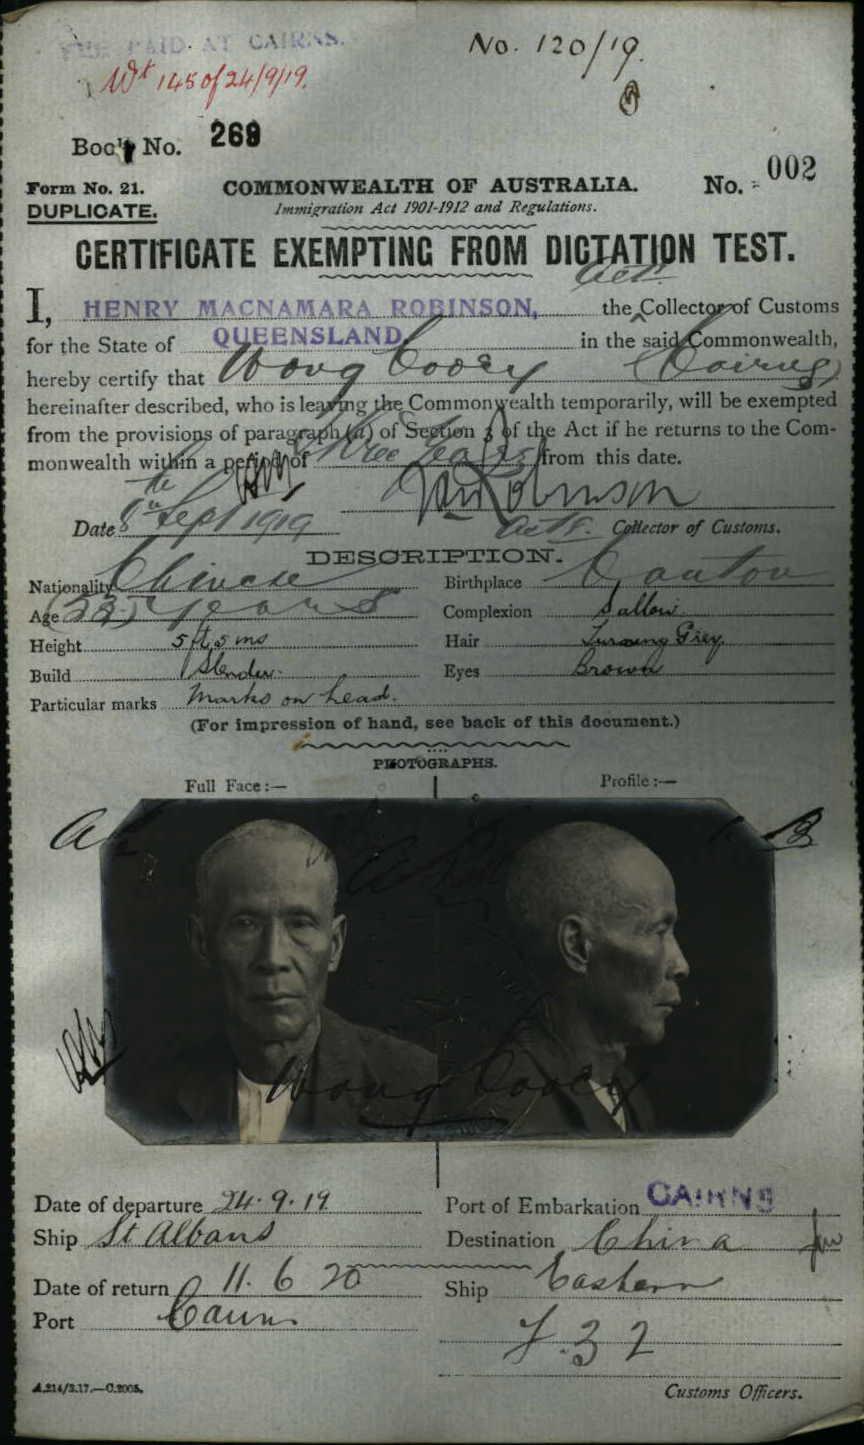 FEE PAID AT CAIRNS.
No. 120/19.
Wt 145 of 24/9/19.
Book No. 268
Form No. 21.
COMMONWEALTH OF AUSTRALIA.
No. 002
DUPLICATE.
Immigration Act 1901-1912 and Regulations.
CERTIFICATE EXEMPTING FROM DICTATION TEST.
actg.
I, HENRY MACNAMARA ROBINSON, the Collector of Customs
for the State of QUEENSLAND in the said Commonwealth,
hereby certify that Wong Cooey (Cairns)
hereinafter described, who is leaving the Commonwealth temporarily, will be exempted
from the provisions of paragraph (a) of Section 3 of the Act if he returns to the Com-
monwealth within a period of three years from this date.
Robinson
Date 8th Sept 1919 Collector of Customs.
DESCRIPTION.
Nationality Chinese Birthplace Canton
Age years Complexion Sallow
Height 5 ft 5 ins Hair Turning Grey
Build Slender. Eyes Brown
Particular marks Marks on head.
(For impression of hand, see back of this document.)
PHOTOGRAPHS.
Full Face:— Profile:—
Wong Cooey
Date of departure 24.9.19 Port of Embarkation CAIRNS
Ship St Albans Destination China
Date of return 11.6.20 Ship Eastern
Port Cairns
F.32
A.214/3.17.—C.2005. Customs Officers.